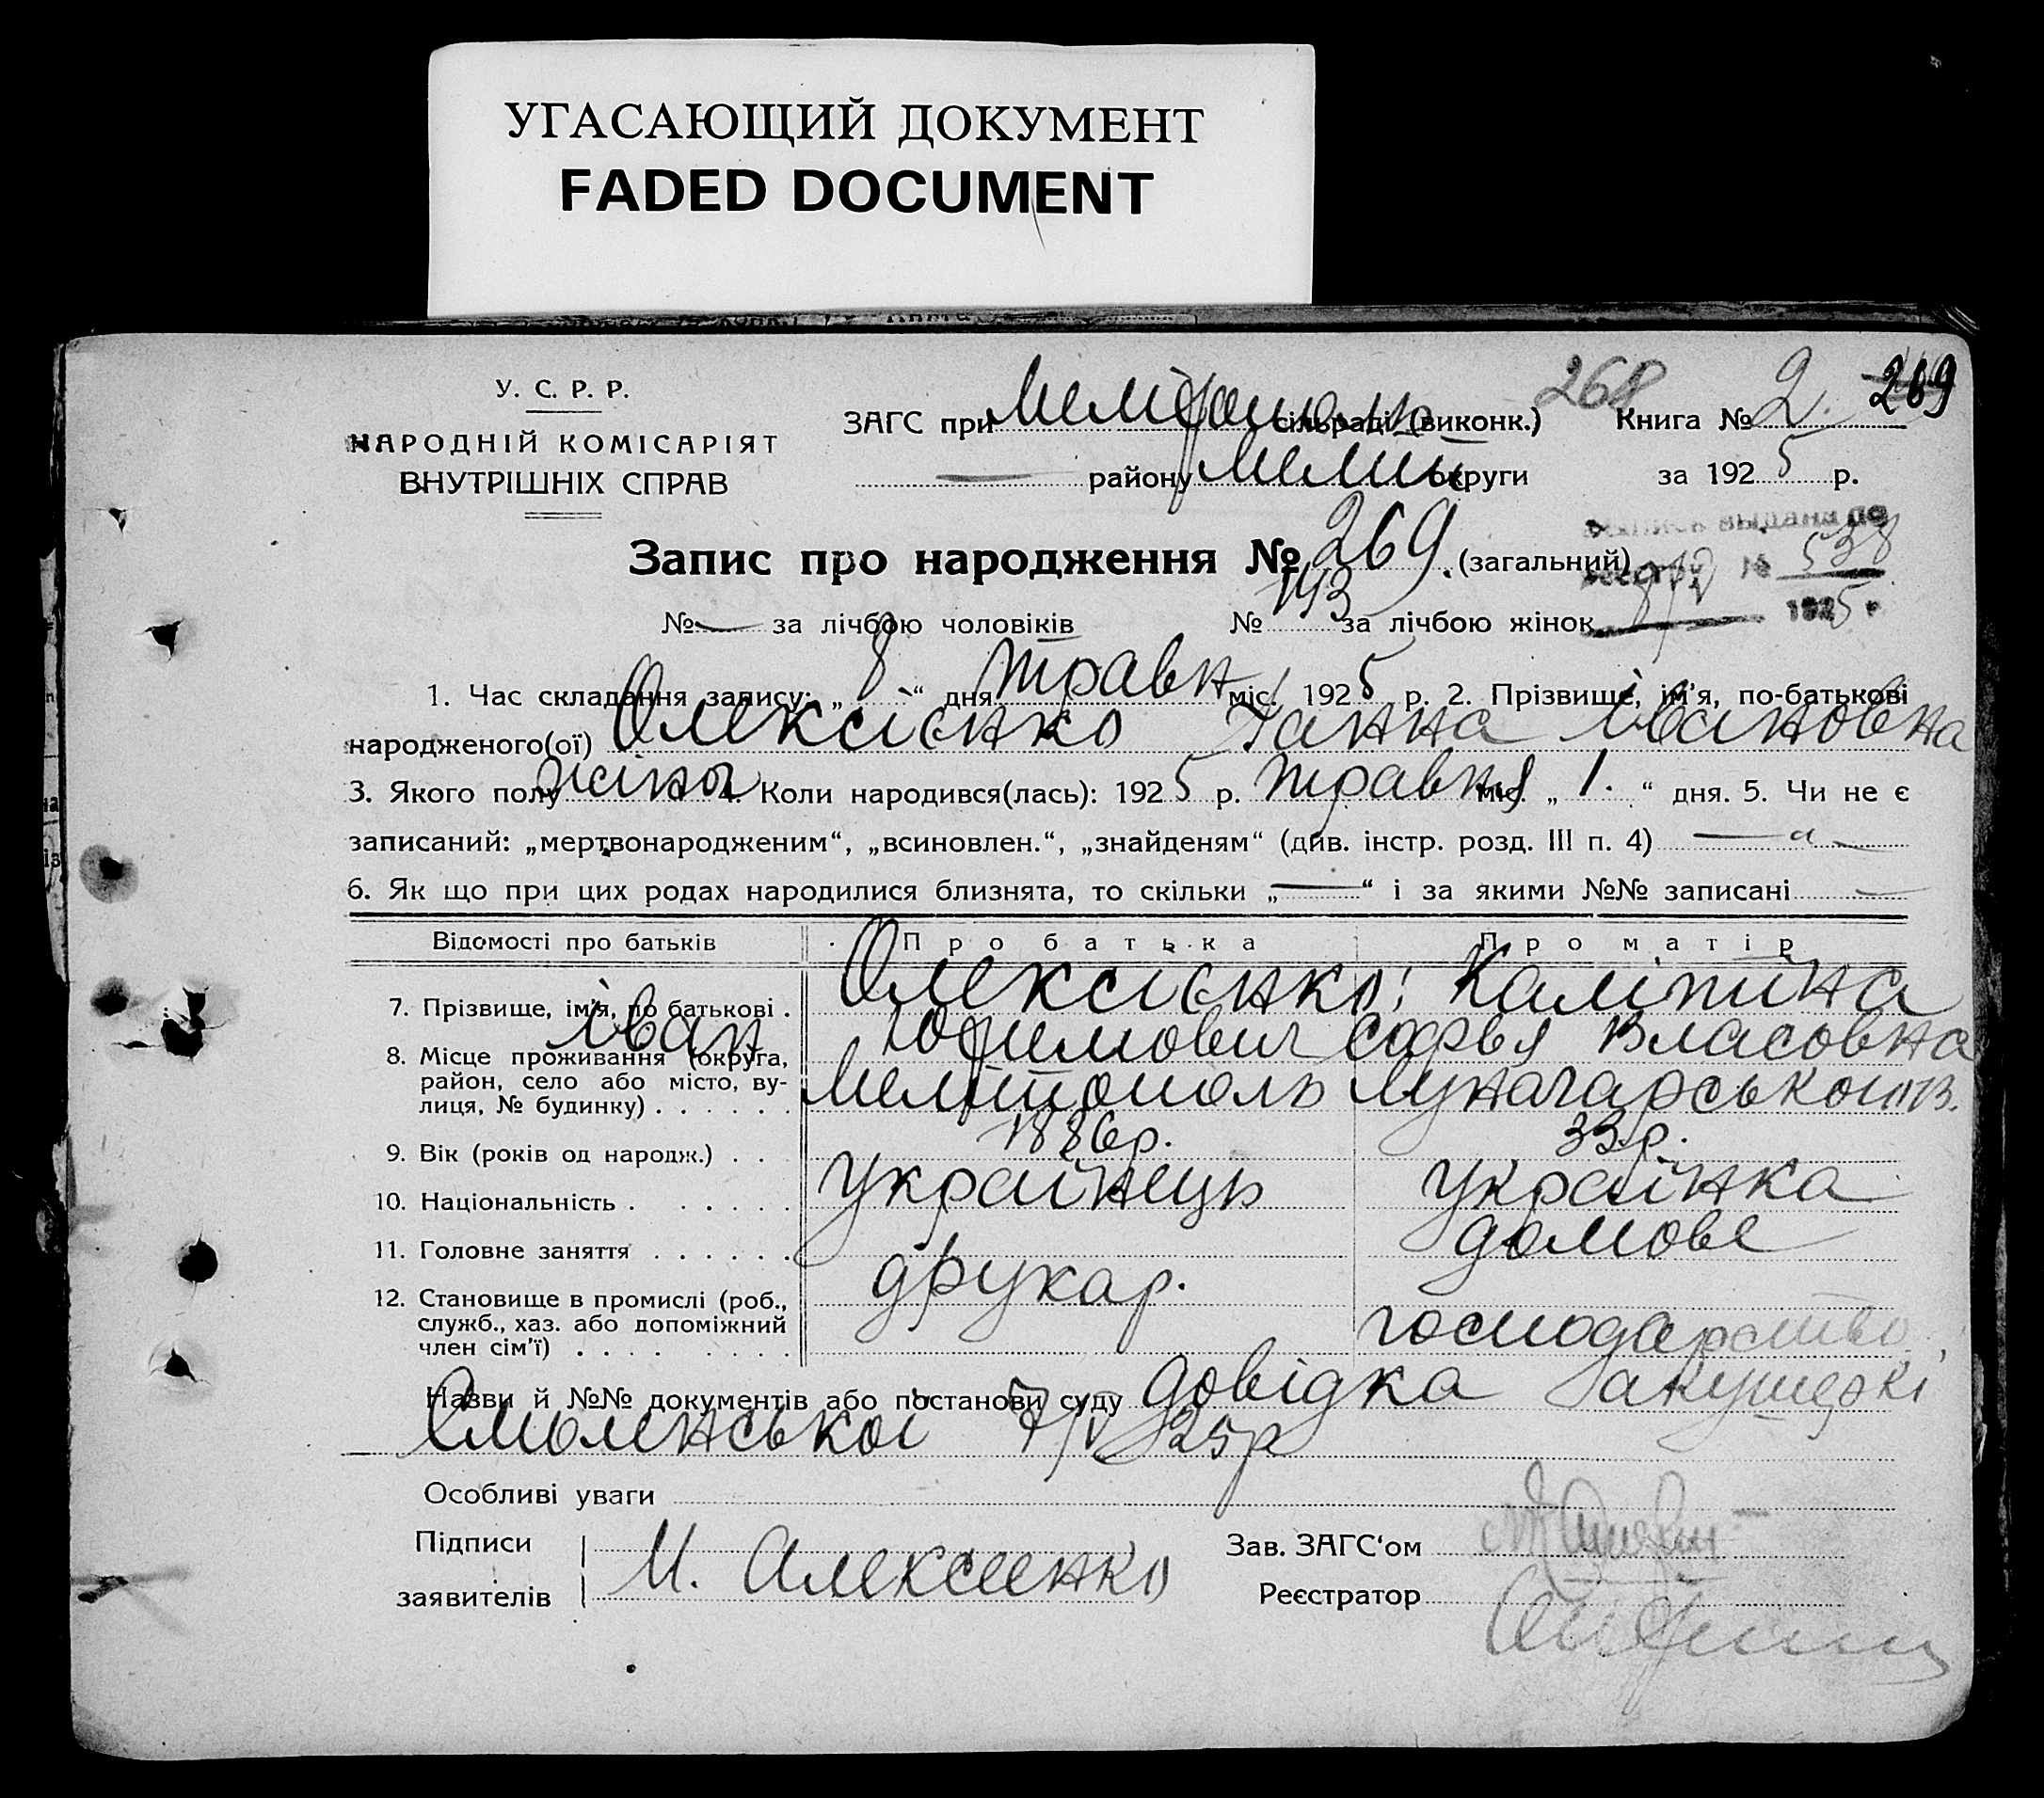 УГАСАЮЩИЙ ДОКУМЕНТ
FADED DOCUMENT
268
У. С. Р. Р.
НАРОДНІЙ КОМІСАРІЯТ
ВНУТРІШНІХ СПРАВ
ЗАГС при сільраді (виконк.) Книга № 2 269
— району Меліт округи за 1925 р.
Запис про народження № 269. (загальний)
538
№ — за лічбою чоловіків № 143 за лічбою жінок 1925 р
1. Час складання запису: „ 8 “ дня травн міс. 1925 р. 2. Прізвище, ім'я, по-батькові
народженого(ої) Олексієнко Ганна Івановна
3. Якого полу жіноч 4. Коли народився(лась): 1925 р. травня міс. „ 1. “ дня. 5. Чи не є
записаний: „мертвонародженим“, „всиновлен.“, „знайденям“ (див. інстр. розд. III п. 4) —
6. Як що при цих родах народилися близнята, то скільки „—“ і за якими №№ записані —
Відомості про батьків Про батька Про матір
7. Прізвище, ім'я, по батькові . Олексієнко Калініна
Іван Юфимович Софья Власовна
8. Місце проживання (округа,
район, село або місто, ву-
лиця, № будинку) . . . . . . Мелітополь Луначарського
9. Вік (років од народж.) . . 1886р. 33.р.
10. Національність . . . . . . українець українка
11. Головне заняття . . . . . . друкар. домове
12. Становище в промислі (роб.,
служб., хаз. або допоміжний
член сім'ї) . . . . . . . . господарство
Назви й №№ документів або постанови суду довідка акушеркі
Смоленської 7/V 25р
Особливі уваги
Підписи
заявителів И. Алексеенко
Зав. ЗАГС‘ом
Реєстратор